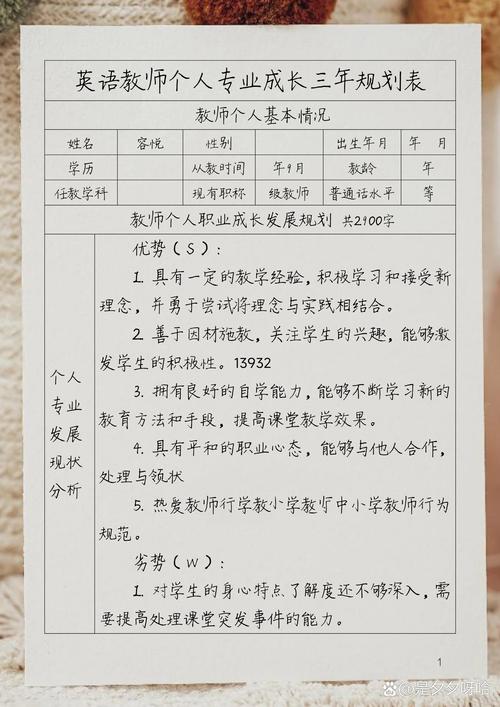 英语教师个人专业成长三年规划表
教师个人基本情况
姓名 容悦 性别 出生年月 年 月
学历 从教时间 年9月 教龄 年
任教学科 现有职称 级教师 普通话水平 等
教师个人职业成长发展规划 共2900字
个人
专业
发展
现状
分析
优势(S):
1. 具有一定的教学经验,积极学习和接受新
理念,并勇于尝试将理念与实践相结合。
2. 善于因材施教,关注学生的兴趣,能够激
发学生的积极性。13932
3. 拥有良好的自学能力,能够不断学习新的
教育方法和手段,提高课堂教学效果。
4. 具有平和的职业心态,能够与他人合作,
处理与领状
5. 热爱教师行学教小学教师中小学教师行为
规范。
劣势(W):
1. 对学生的身心特点了解度还不够深入,需
要提高处理课堂突发事件的能力。
1
@是夕夕呀哈